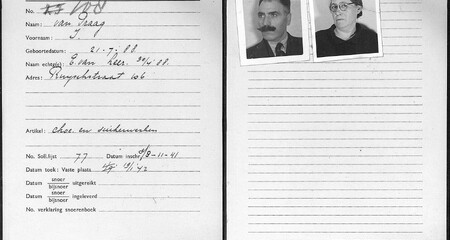 No. 108
Naam: van Praag
Voornaam: I.
Geboortedatum: 21-7-88
Naam echtg(e): E. van Leer. 30/4 88.
Adres: Ruyschstraat 106
Artikel: choc. en suikerwerken
No. Soll.lijst 77 Datum inschr. 8-11-41
Datum toek: Vaste plaats
Datum snoer uitgereikt
bijsnoer
Datum snoer ingeleverd
bijsnoer
No. verklaring snoerenboek